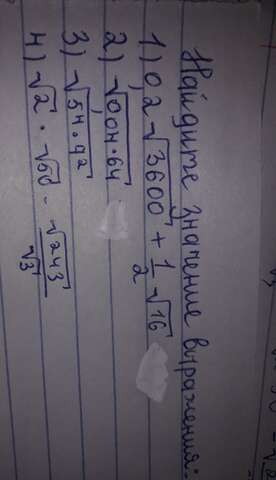 Найдите значение выражения:
1) 0,2√3600 + 1/2 √16
2) √0,04·64
3) √54·42
4) √2 · √50 - √243/√3